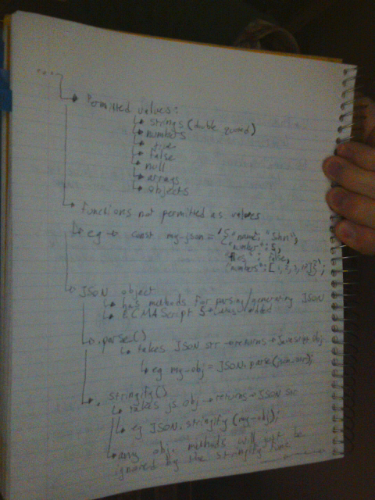 Permitted values:
strings (double quoted)
numbers
true
false
null
arrays
objects
functions not permitted as values
eg → const my-json = '{"name": "John",
"number":
: false,
"numbers":
JSON object
has methods for parsing/generating JSON
ECMAScript 5
parse()
takes JSON str → returns → Javascript obj
eg my-obj = JSON.parse(
stringify()
takes js obj → returns → JSON str
eg JSON.stringify(my-obj);
any obj. methods will
ignored by the stringify